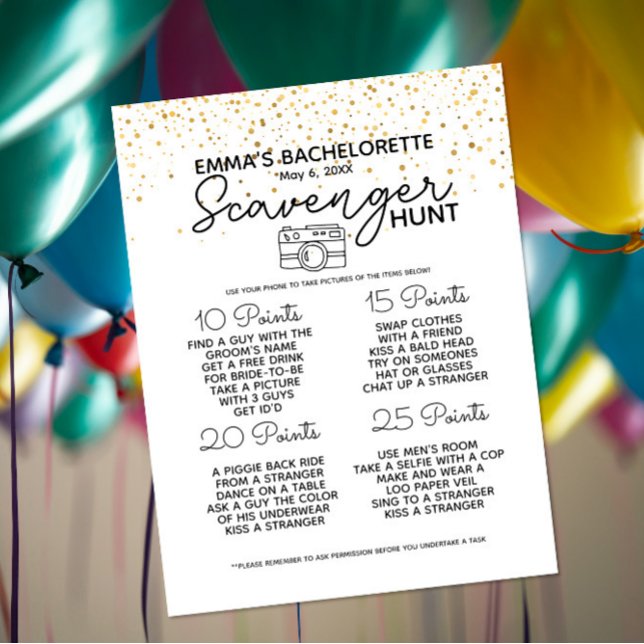 EMMA'S BACHELORETTE
May 6, 20XX
Scavenger
HUNT
USE YOUR PHONE TO TAKE PICTURES OF THE ITEMS BELOW!
10 Points
FIND A GUY WITH THE
GROOM'S NAME
GET A FREE DRINK
FOR BRIDE-TO-BE
TAKE A PICTURE
WITH 3 GUYS
GET ID'D
15 Points
SWAP CLOTHES
WITH A FRIEND
KISS A BALD HEAD
TRY ON SOMEONES
HAT OR GLASSES
CHAT UP A STRANGER
20 Points
A PIGGIE BACK RIDE
FROM A STRANGER
DANCE ON A TABLE
ASK A GUY THE COLOR
OF HIS UNDERWEAR
KISS A STRANGER
25 Points
USE MEN'S ROOM
TAKE A SELFIE WITH A COP
MAKE AND WEAR A
LOO PAPER VEIL
SING TO A STRANGER
KISS A STRANGER
**PLEASE REMEMBER TO ASK PERMISSION BEFORE YOU UNDERTAKE A TASK